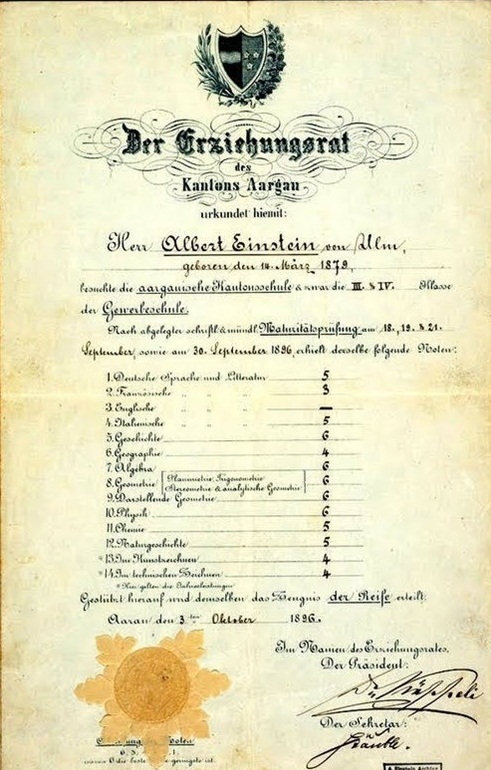 Der Erziehungsrat
des
Kantons Aargau
urkundet hiemit:
Herr Albert Einstein von Ulm,
geboren den 14. März 1879,
besuchte die aargauische Kantonsschule & zwar die III. & IV. Klasse
der Gewerbeschule.
Nach abgelegter schriftl. & mündl. Maturitätsprüfung am 18., 19. & 21.
September, sowie am 30. September 1896, erhielt derselbe folgende Noten:
1. Deutsche Sprache und Litteratur 5
2. Französische „ „ „ 3
3. Englische „ „ „ —
4. Italienische „ „ „ 5
5. Geschichte 6
6. Geographie 4
7. Algebra 6
8. Geometrie [Planimetrie, Trigonometrie Stereometrie & analytische Geometrie] 6
9. Darstellende Geometrie 6
10. Physik 6
11. Chemie 5
12. Naturgeschichte 5
*13. Im Kunstzeichnen 4
*14. Im technischen Zeichnen 4
*Hier gelten die Jahresleistungen
Gestützt hierauf wird demselben das Zeugnis der Reife erteilt.
Aarau den 3ten Oktober 1896.
Im Namen des Erziehungsrates,
Der Präsident:
Der Sekretär: